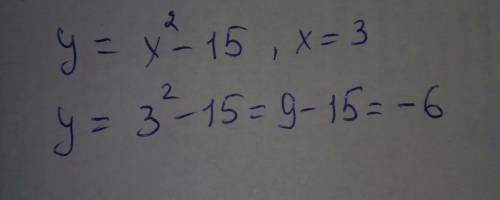 y = x² - 15 , x = 3
y = 3² - 15 = 9 - 15 = -6